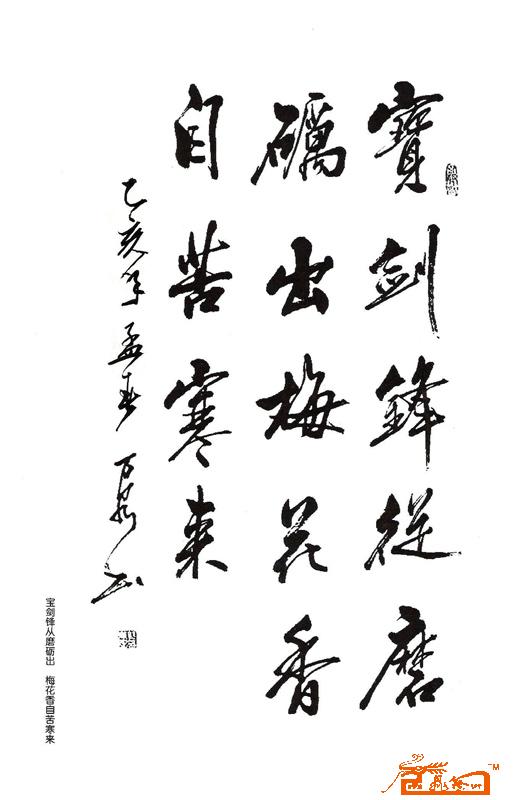 寶劍鋒從磨
礪出梅花香
自苦寒来
乙亥年孟春
宝剑锋从磨砺出 梅花香自苦寒来
TM